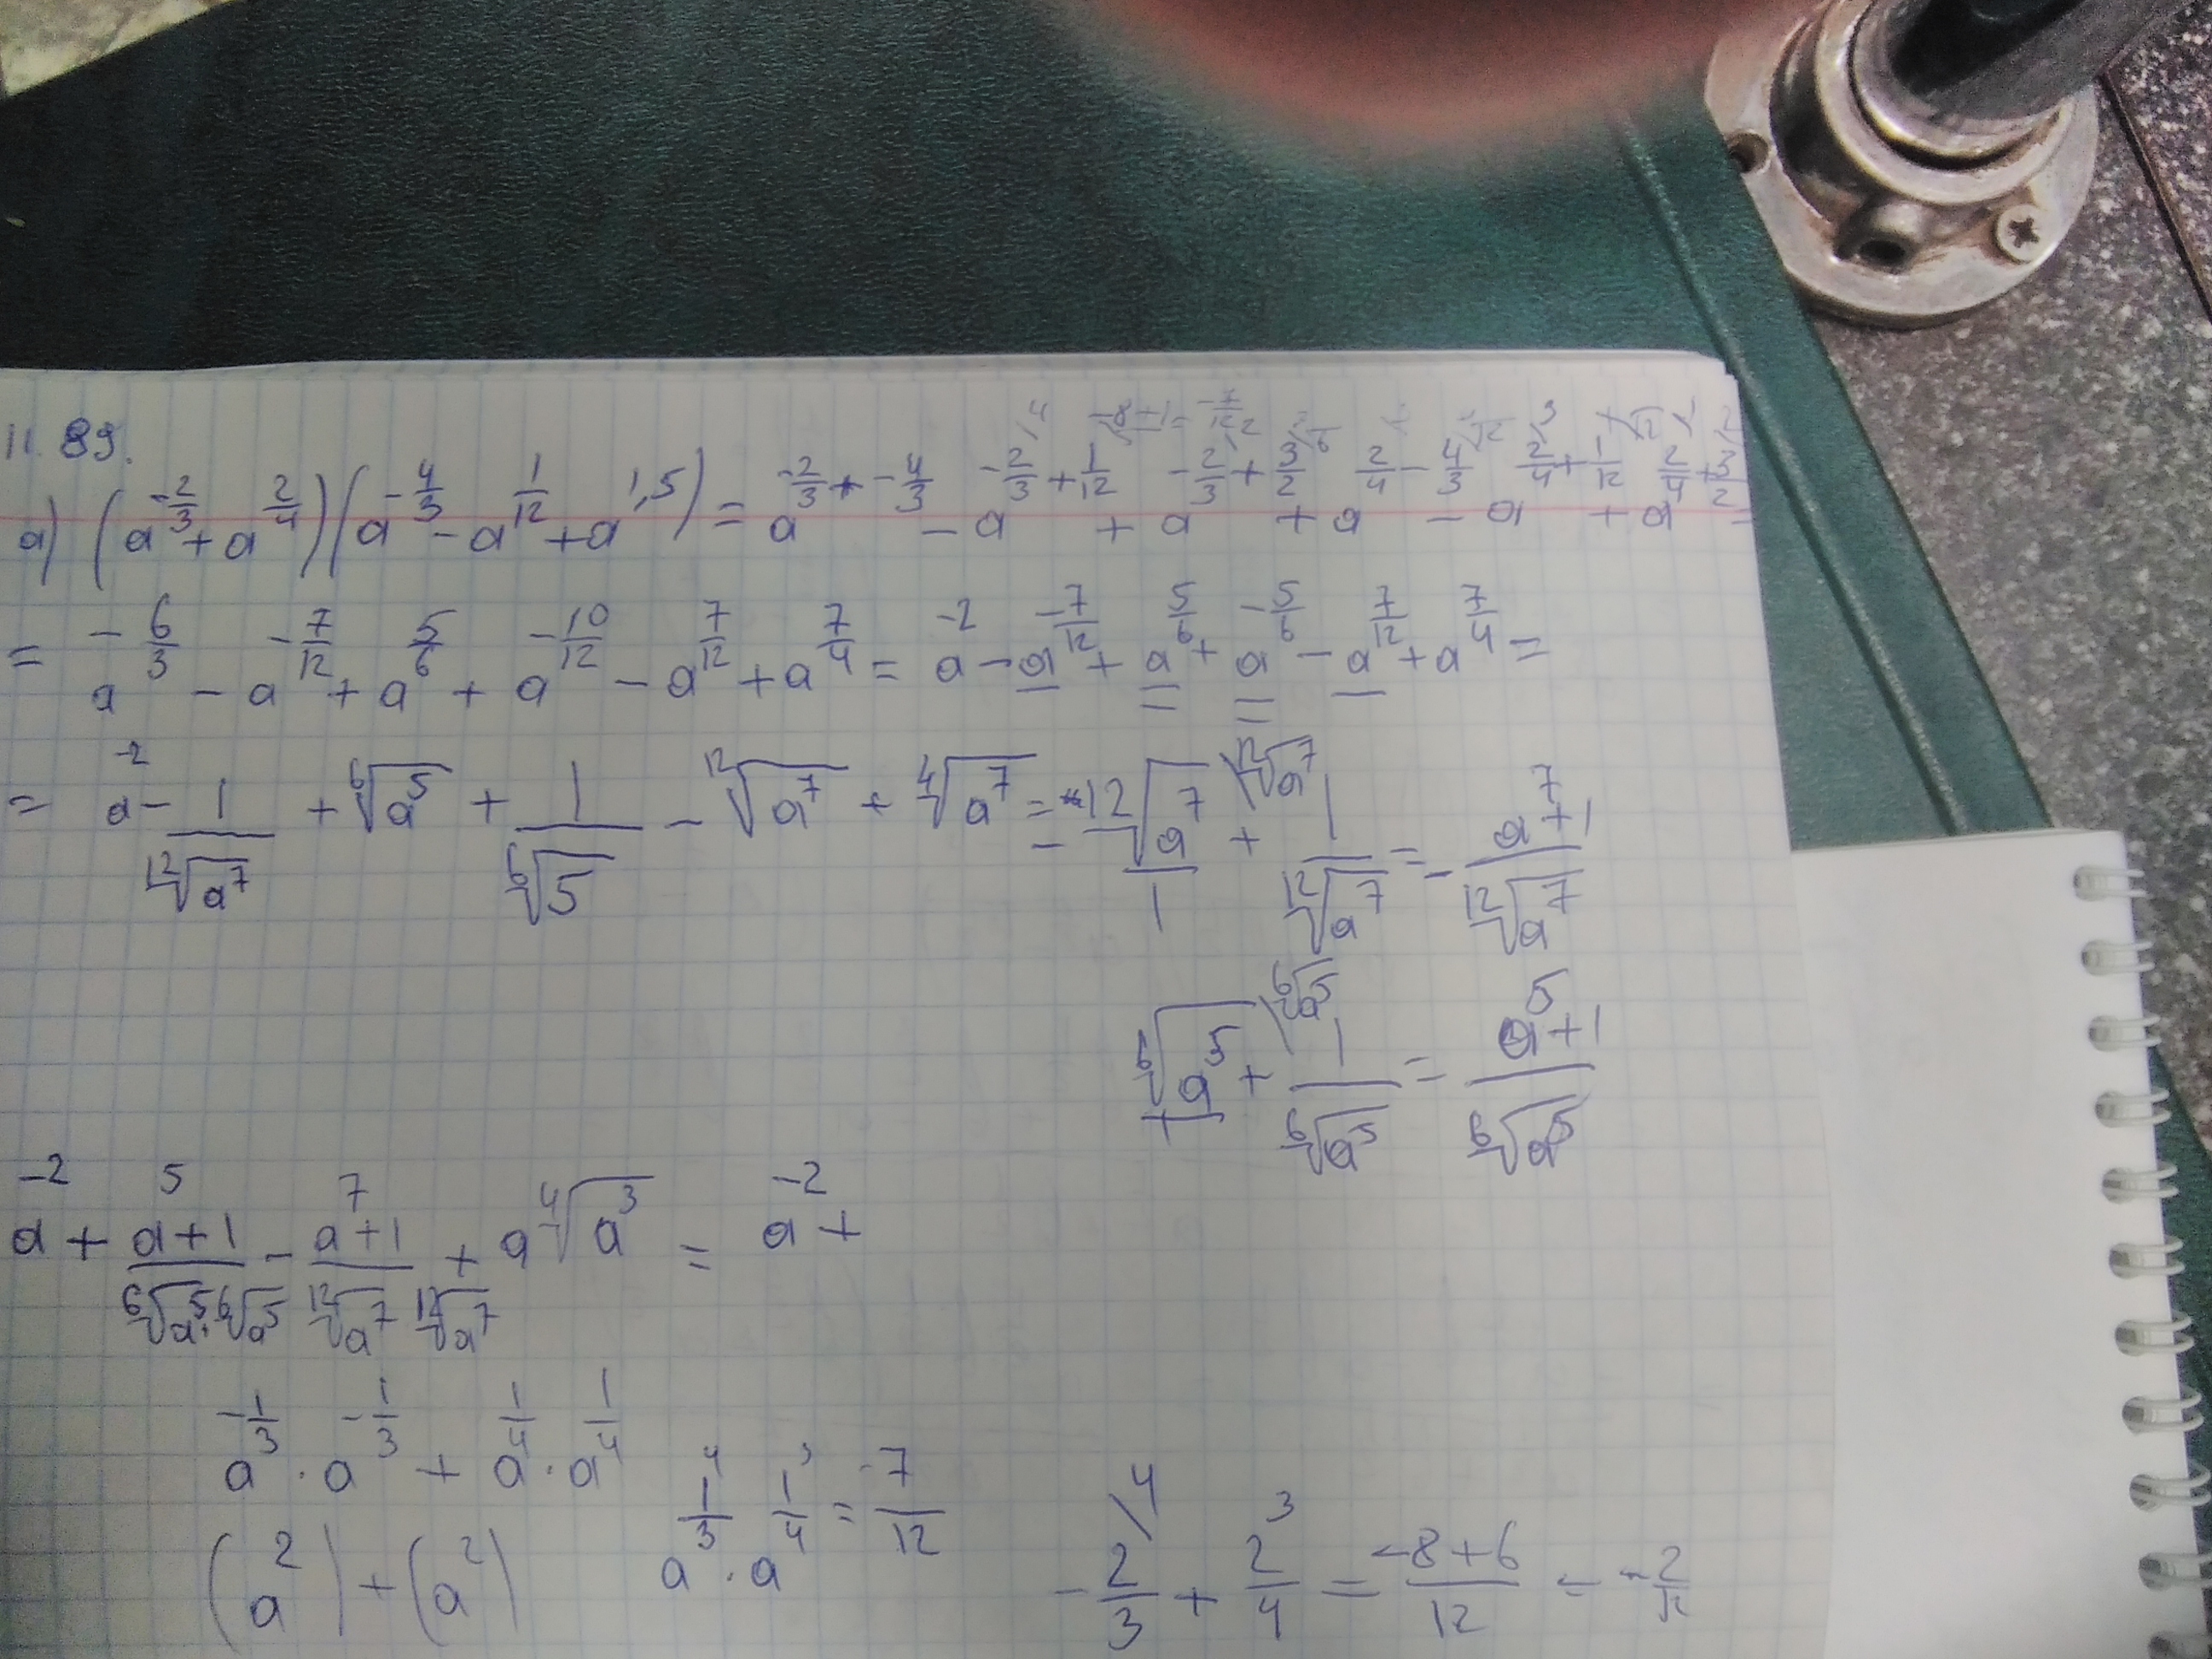 11.89.
а) (a^{-2/3} + a^{2/4})(a^{-4/3} - a^{1/12} + a^{1,5}) = a^{-2/3 + -4/3} - a^{-2/3 + 1/12} + a^{-2/3 + 3/2} + a^{2/4 - 4/3} - a^{2/4 + 1/12} + a^{2/4 + 3/2} =
= a^{-6/3} - a^{-7/12} + a^{5/6} + a^{-10/12} - a^{7/12} + a^{7/4} = a^{-2} - a^{-7/12} + a^{5/6} + a^{-5/6} - a^{7/12} + a^{7/4} =
= a^{-2} - 1/¹²√a⁷ + ⁶√a⁵ + 1/⁶√5 - ¹²√a⁷ + ⁴√a⁷ = - ¹²√a⁷/1 \¹²√a⁷ + 1/¹²√a⁷ = - (a⁷+1)/¹²√a⁷
⁶√a⁵/1 \⁶√a⁵ + 1/⁶√a⁵ = (a⁵+1)/⁶√a⁵
a^{-2} + (a⁵+1)/(⁶√a⁵·⁶√a⁵) - (a⁷+1)/(¹²√a⁷ ¹²√a⁷) + a⁴√a³ = a^{-2} +
a^{-1/3} · a^{-1/3} + a^{1/4} · a^{1/4}
a^{1/3} · a^{1/4} = -7/12
(a²) + (a²)
-2/3 \4 + 2/4 3 = (-8+6)/12 = -2/12